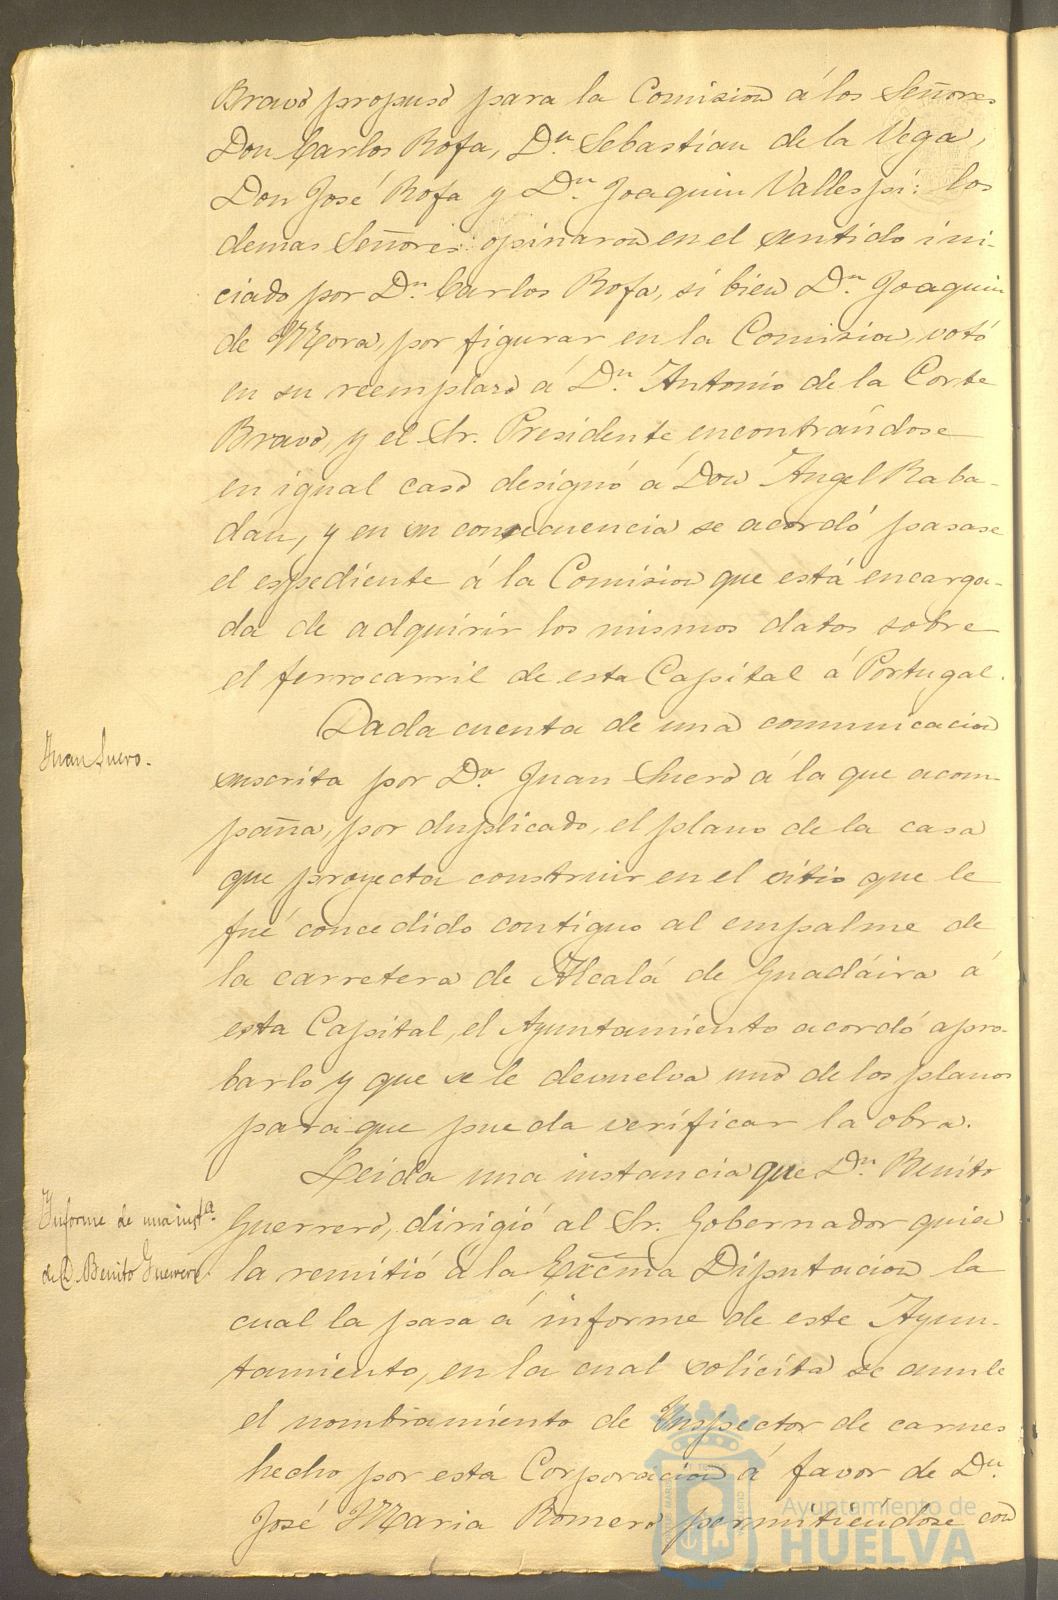 Bravo propuso para la Comision á los Señores
Don Carlos Rofa, Dn. Sebastian de la Vega,
Don José Rofa y Dn. Joaquin Vallespi: los
demas Señores opinaron en el sentido ini-
ciado por Dn. Carlos Rofa, si bien Dn. Joaquin
de Mora, por figurar en la Comision, votó
en su reemplazo á Dn. Antonio de la Corte
Bravo, y el Sr. Presidente encontrándose
en igual caso designó á Don Angel Raba-
dán, y en su consecuencia se acordó pasase
el espediente á la Comision que está encarga-
da de adquirir los mismos datos sobre
el ferrocarril de esta Capital á Portugal.
Juan Suero.
Dada cuenta de una comunicacion
suscrita por Dn. Juan Suero á la que acom-
paña, por duplicado, el plano de la casa
que proyecta construir en el sitio que le
fué concedido contiguo al empalme de
la carretera de Alcalá de Guadáira á
esta Capital, el Ayuntamiento acordó apro-
barlo y que se le devuelva uno de los planos
para que pueda verificar la obra.
Informe de una insta.
de D. Benito Guerrero.
Leida una instancia que Dn. Benito
Guerrero, dirigió al Sr. Gobernador quien
la remitió á la Excma Diputacion la
cual la pasa á informe de este Ayun-
tamiento, en la cual solicita se anule
el nombramiento de Inspector de carnes
hecho por esta Corporacion á favor de Dn.
José Maria Romero permitiéndose con
Ayuntamiento de
HUELVA